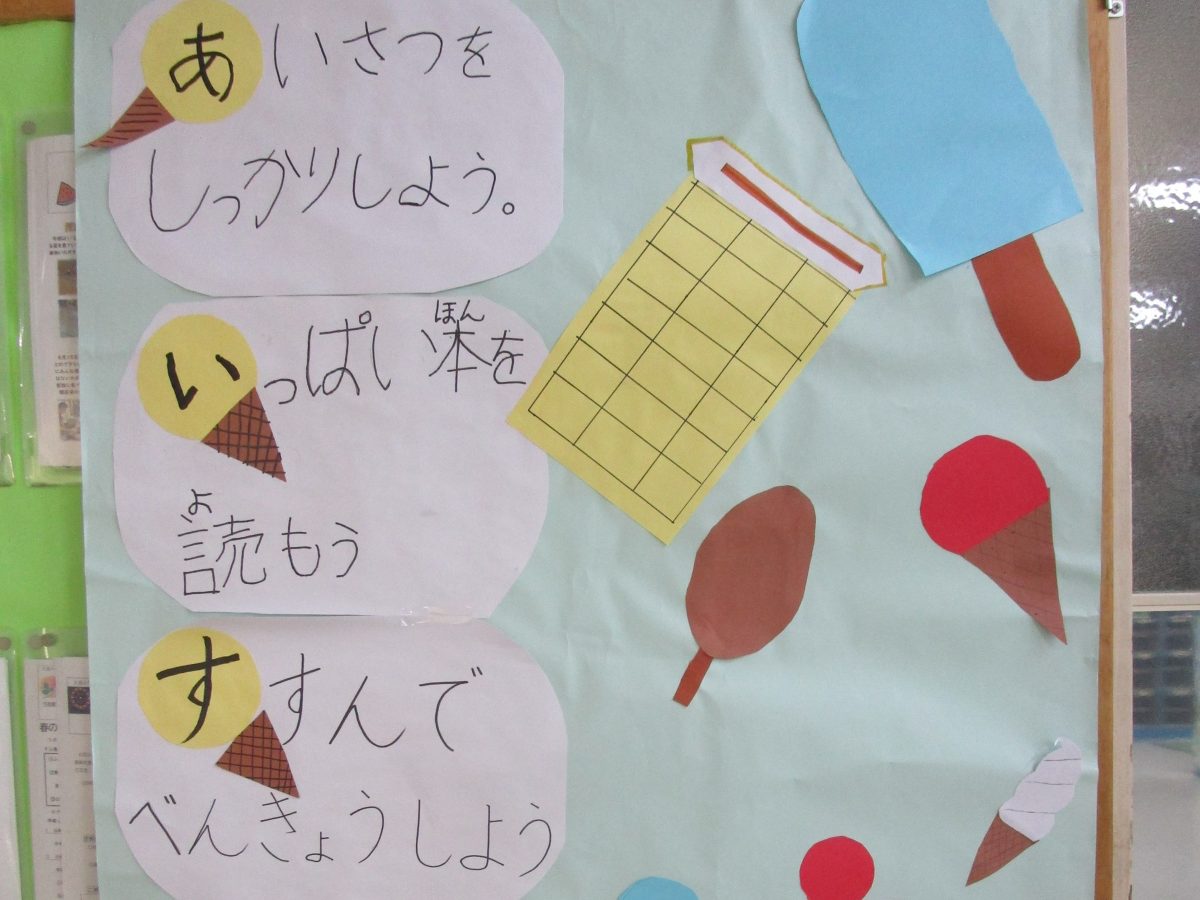 あいさつを
しっかりしよう。
いっぱい本を
ほん
読もう
よ
すすんで
べんきょうしよう